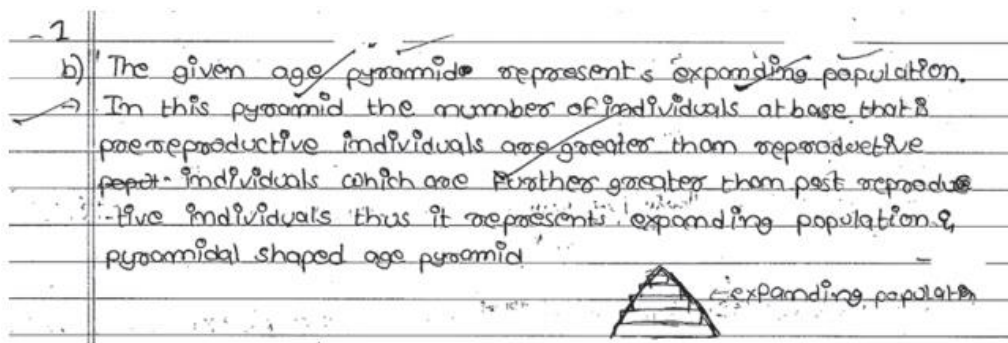 -1
b) The given age pyramid represents expanding population.
→ In this pyramid the number of individuals at base that is
prereproductive individuals are greater than reproductive
individuals which are further greater than post reproduc
-tive individuals thus it represents expanding population &
pyramidal shaped age pyramid
-expanding population